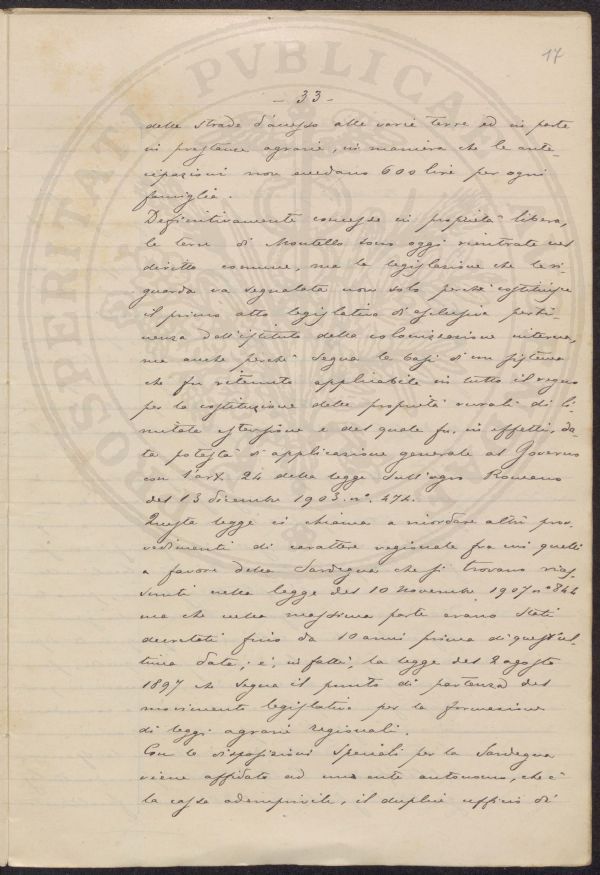 17
- 33 -
delle strade d'accesso alle varie terre ed in parte
in prestanze agrarie, in maniera che le ante-
cipazioni non eccedano 600 lire per ogni
famiglia.
Definitivamente concesse in proprietà libera,
le terre di Montello sono oggi rientrate nel
diritto comune, ma la legislazione che le ri-
guarda va segnalata non solo perchè costituisce
il primo atto legislativo di esclusiva perti-
nenza dell'istituto della colonizzazione interna,
ma anche perchè segna le basi di un sistema
che fu ritenuto applicabile in tutto il regno
per la costituzione delle proprietà rurali di li-
mitata estensione e del quale fu, in effetti, da-
ta potestà di applicazione generale al Governo
con l'art. 24 della legge sull'agro Romano
del 13 dicembre 1903. n°. 474.
Questa legge ci chiama a ricordare altri prov-
vedimenti di carattere regionale fra cui quelli
a favore della Sardegna che si trovano rias-
sunti nella legge del 10 Novembre 1907 n° 842
ma che nella massima parte erano stati
decretati fino da 10 anni prima di quest'ul-
tima data; è, infatti, la legge del 2 agosto
1897 che segna il punto di partenza del
movimento legislativo per la formazione
di leggi agrarie regionali.
Con le disposizioni speciali per la Sardegna
viene affidato ad un ente autonomo, che è
la cassa ademprivile, il duplice ufficio di
PROSPERITATI PVBLICAE